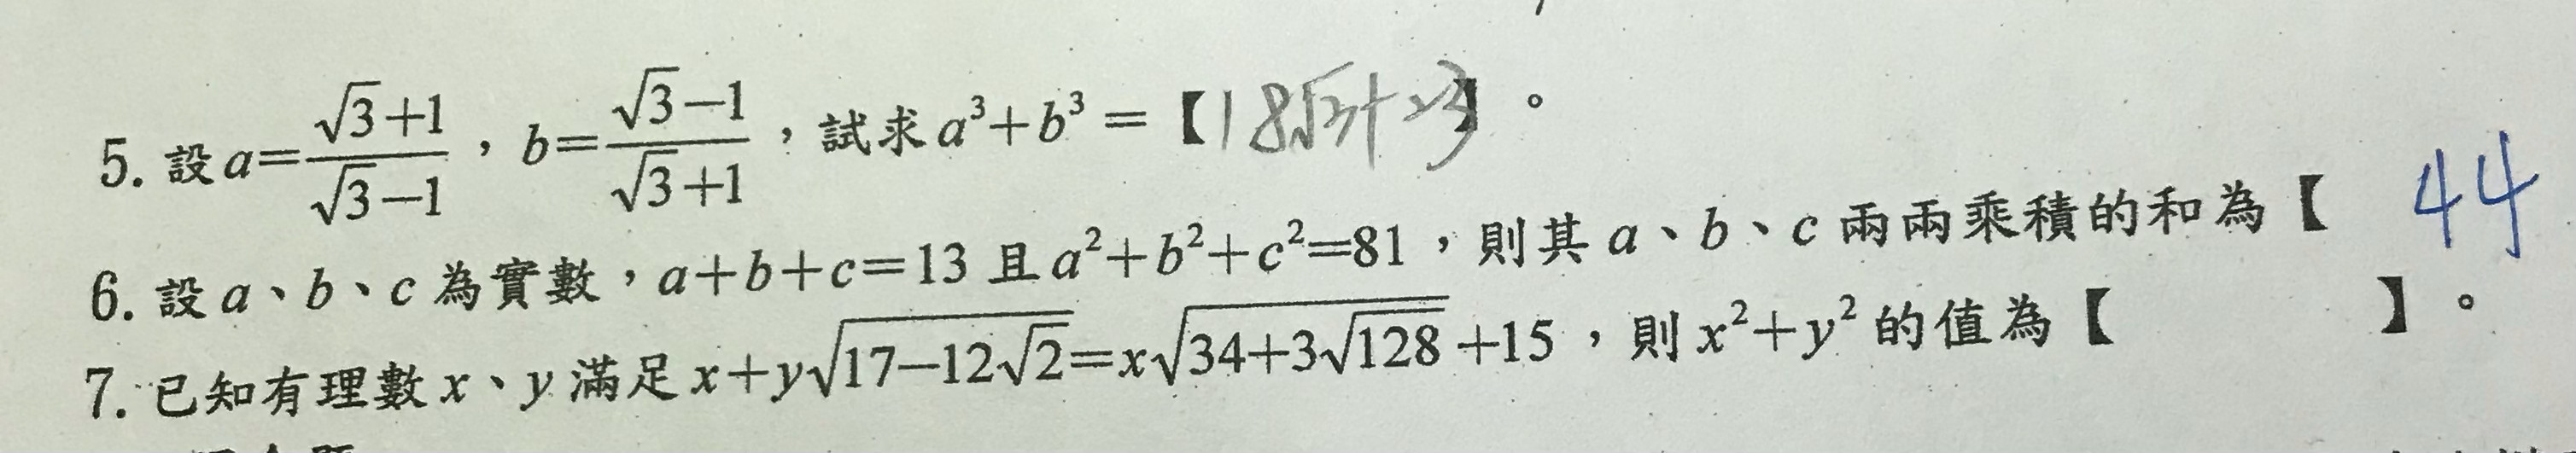 5. 設 a=(√3+1)/(√3−1)，b=(√3−1)/(√3+1)，試求 a³+b³ =【18√3+23】。
6. 設 a、b、c 為實數，a+b+c=13 且 a²+b²+c²=81，則其 a、b、c 兩兩乘積的和為【 44
7. 已知有理數 x、y 滿足 x+y√(17−12√2)=x√(34+3√128)+15，則 x²+y² 的值為【 】。